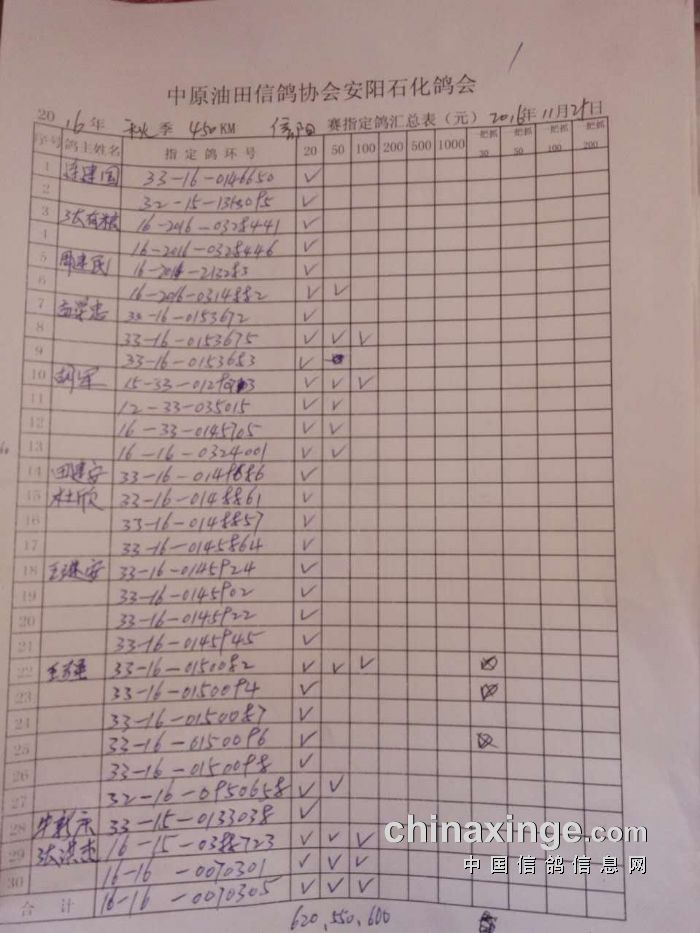 中原油田信鸽协会安阳石化鸽会
2016年 秋季 450KM 信阳 赛指定鸽汇总表（元）2016年11月29日
序号 鸽主姓名 指定鸽环号 20 50 100 200 500 1000 一把抓30 一把抓50 一把抓100 一把抓200
1 连建国 33-16-0146650 ✓
2 32-15-1313095 ✓
3 16-2016-0328441 ✓
4 16-2016-0328446 ✓
5 周建民 16-2016-213283 ✓
6 16-2016-0314882 ✓ ✓
7 33-16-0153672 ✓
8 33-16-0153675 ✓ ✓ ✓
9 33-16-0153683 ✓
10 胡军 15-33- ✓ ✓ ✓
11 12-33-035015 ✓ ✓
12 16-33-0145705 ✓ ✓
13 16-16-0324001 ✓ ✓
14 田建安 33-16-0148686 ✓
15 杜欣 33-16-0148861 ✓
16 33-16-0148857 ✓
17 33-16-0145864 ✓
18 33-16-0145924 ✓
19 33-16-0145902 ✓
20 33-16-0145922 ✓
21 33-16-0145945 ✓
22 33-16-0150082 ✓ ✓ ✓
23 33-16-0150094 ✓
24 33-16-0150087 ✓
25 33-16-0150096 ✓
26 33-16-0150098 ✓
27 32-16-0950658 ✓ ✓
28 牛新庆 33-15-0133038 ✓
29 张洪杰 16-15-0388723 ✓ ✓ ✓
30 16-16-0070301 ✓ ✓ ✓
合计 16-16-0070305 ✓ ✓ ✓
620,550,600
chinaxinge.com
中国信鸽信息网